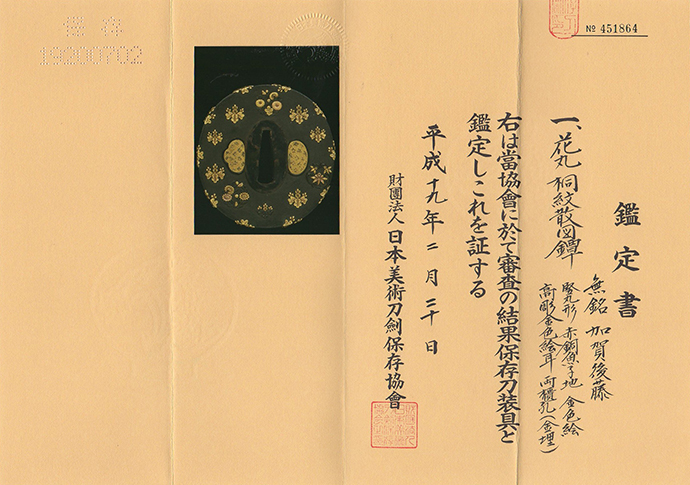 № 451864
鑑定書
一、花丸桐紋散図鐔
無銘 加賀後藤
竪丸形 赤銅魚子地 金色絵
高彫金色絵耳 両櫃孔(金埋)
右は當協會に於て審査の結果保存刀装具と
鑑定しこれを証する
平成十九年二月二十日
財團法人 日本美術刀劍保存協會
保存
19200702